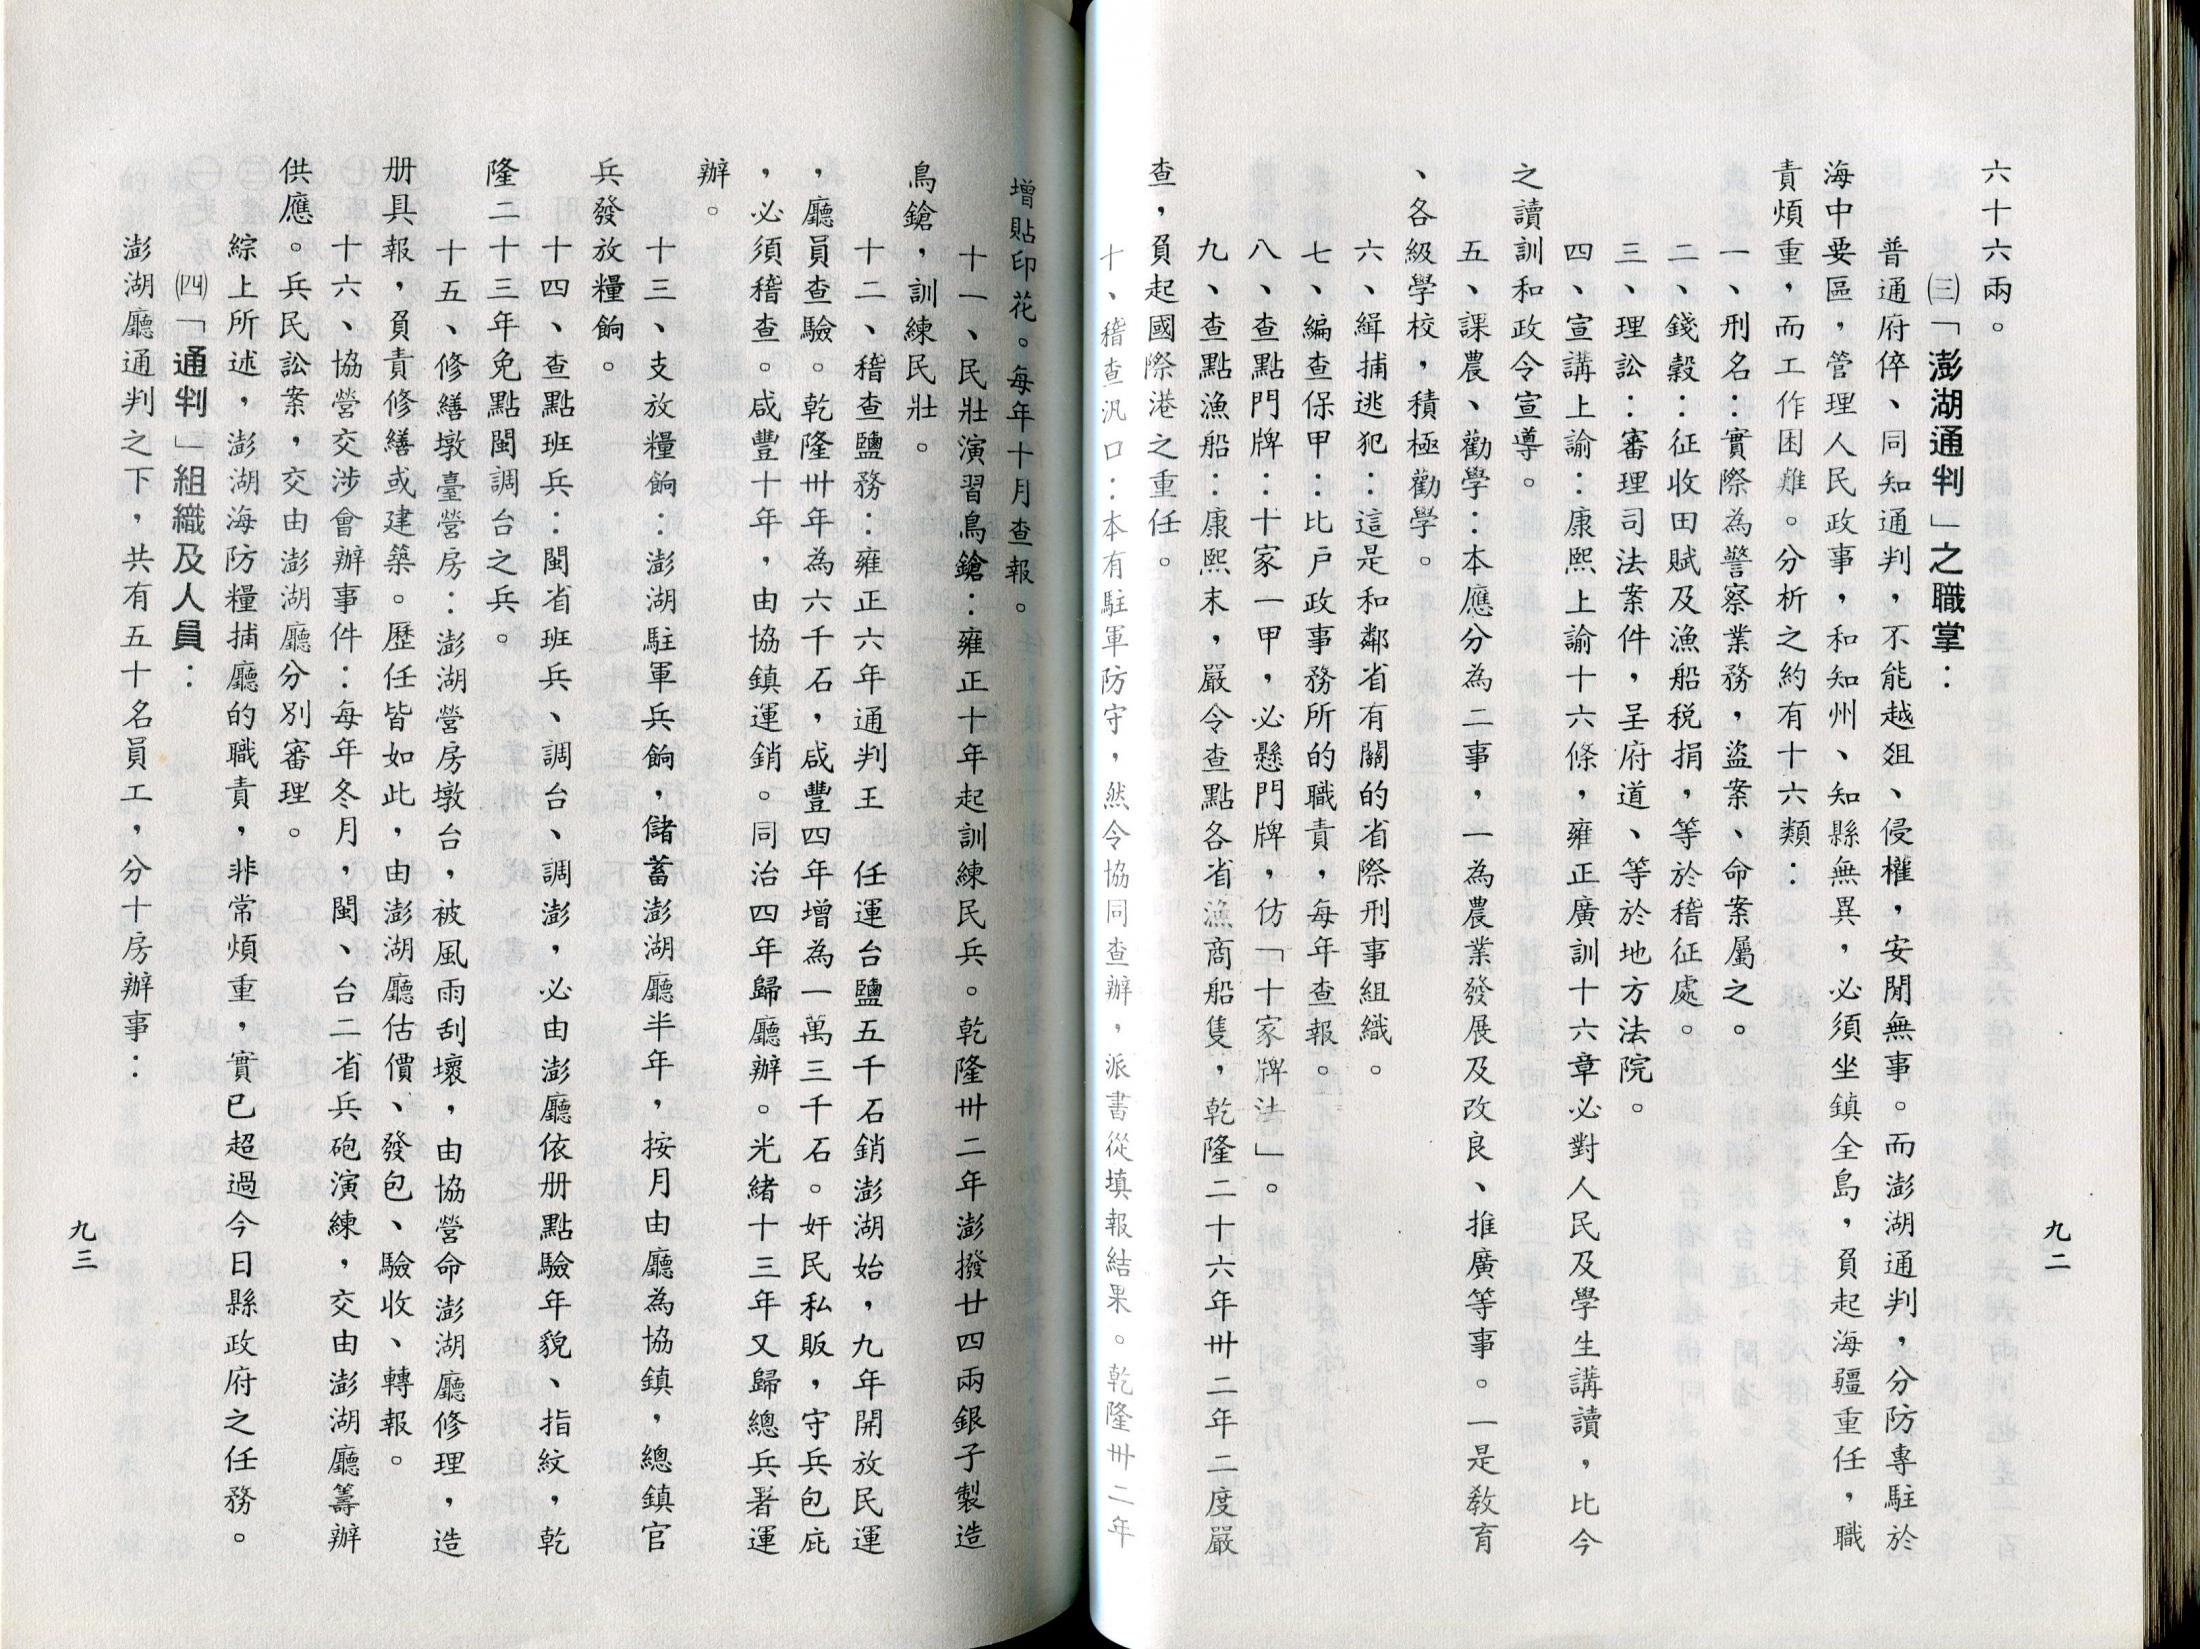 六十六兩。
㈢「澎湖通判」之職掌：
普通府倅、同知通判，不能越俎、侵權，安閒無事。而澎湖通判，分防專駐於
海中要區，管理人民政事，和知州、知縣無異，必須坐鎮全島，負起海疆重任，職
責煩重，而工作困難。分析之約有十六類：
一、刑名：實際為警察業務，盜案、命案屬之。
二、錢穀：征收田賦及漁船稅捐，等於稽征處。
三、理訟：審理司法案件，呈府道、等於地方法院。
四、宣講上諭：康熙上諭十六條，雍正廣訓十六章必對人民及學生講讀，比今
之讀訓和政令宣導。
五、課農、勸學：本應分為二事，一為農業發展及改良、推廣等事。一是教育
、各級學校，積極勸學。
六、緝捕逃犯：這是和鄰省有關的省際刑事組織。
七、編查保甲：比戶政事務所的職責，每年查報。
八、查點門牌：十家一甲，必懸門牌，仿「十家牌法」。
九、查點漁船：康熙末，嚴令查點各省漁商船隻，乾隆二十六年卅二年二度嚴
查，負起國際港之重任。
十、稽查汛口：本有駐軍防守，然令協同查辦，派書從填報結果。乾隆卅二年
九二
增貼印花。每年十月查報。
十一、民壯演習鳥鎗：雍正十年起訓練民兵。乾隆卅二年澎撥廿四兩銀子製造
鳥鎗，訓練民壯。
十二、稽查鹽務：雍正六年通判王　任運台鹽五千石銷澎湖始，九年開放民運
，廳員查驗。乾隆卅年為六千石，咸豐四年增為一萬三千石。奸民私販，守兵包庇
，必須稽查。咸豐十年，由協鎮運銷。同治四年歸廳辦。光緒十三年又歸總兵署運
辦。
十三、支放糧餉：澎湖駐軍兵餉，儲蓄澎湖廳半年，按月由廳為協鎮，總鎮官
兵發放糧餉。
十四、查點班兵：閩省班兵、調台、調澎，必由澎廳依册點驗年貌、指紋，乾
隆二十三年免點閩調台之兵。
十五、修繕墩臺營房：澎湖營房墩台，被風雨刮壞，由協營命澎湖廳修理，造
册具報，負責修繕或建築。歷任皆如此，由澎湖廳估價、發包、驗收、轉報。
十六、協營交涉會辦事件：每年冬月，閩、台二省兵砲演練，交由澎湖廳籌辦
供應。兵民訟案，交由澎湖廳分別審理。
綜上所述，澎湖海防糧捕廳的職責，非常煩重，實已超過今日縣政府之任務。
㈣「通判」組織及人員：
澎湖廳通判之下，共有五十名員工，分十房辦事：
九三